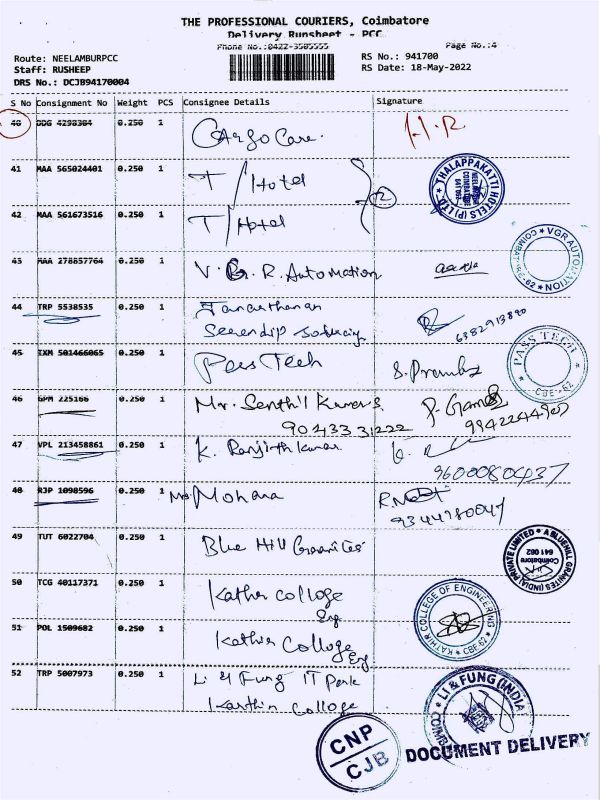 THE PROFESSIONAL COURIERS, Coimbatore
Delivery Runsheet - PCC
Phone No.:0422-3505555
Page No.:4
Route: NEELAMBURPCC
RS No.: 941700
Staff: RUSHEEP
RS Date: 18-May-2022
DRS No.: DCJB94170004
S No Consignment No Weight PCS Consignee Details Signature
40 DDG 4298384 0.250 1 Cargo Care.
41 MAA 565024401 0.250 1 T/Hotel
2
THALAPPAKATTI HOTELS (P) LTD
42 MAA 561673516 0.250 1 T/Hotel
43 MAA 278857764 0.250 1 V.G.R. Automation
VGR AUTOMATION
44 TRP 5538535 0.250 1 Janarthanan
Serendip
6382913890
45 IXM 501466065 0.250 1 Pass Tech
PASS TECH
CBE-62
46 GPM 225166 0.250 1 Mr. Senthil Kumar S
9043331222
9942244907
47 VPL 213458861 0.250 1 K. Ranjith kumar
9600080437
48 RJP 1098596 0.250 1 Mohana
9344980047
49 TUT 6022704 0.250 1 Blue Hill Granites
A BLUEHILL GRANITES (INDIA) PRIVATE LIMITED
Coimbatore
641 062
50 TCG 40117371 0.250 1 Kathir college
Eng
KATHIR COLLEGE OF ENGINEERING
CBE-62
51 POL 1509682 0.250 1 Kathir College
Eng
52 TRP 5007973 0.250 1 Li & Fung IT Park
Karthir College
LI & FUNG (INDIA)
CNP
CJB
DOCUMENT DELIVERY